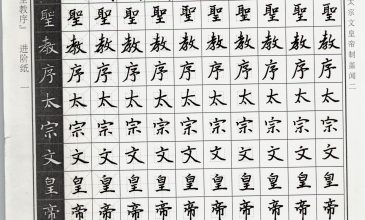 太宗文皇帝制蓋闻二
聖教序太宗文皇帝
聖教序太宗文皇帝
聖教序太宗文皇帝
聖教序太宗文皇帝
聖教序太宗文皇帝
聖教序太宗文皇帝
聖教序太宗文皇帝
聖教序太宗文皇帝
聖教序太宗文皇帝
聖教序太宗文皇帝
聖教序太宗文皇帝
教序』 进阶纸 一